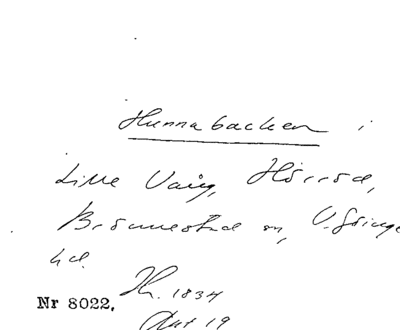 Hunnabacken i
Lille Vång, Hörröd,
Brönnestad sn, V. Göinge
hd.
Nr 8022. Th. 1834
Akt 19